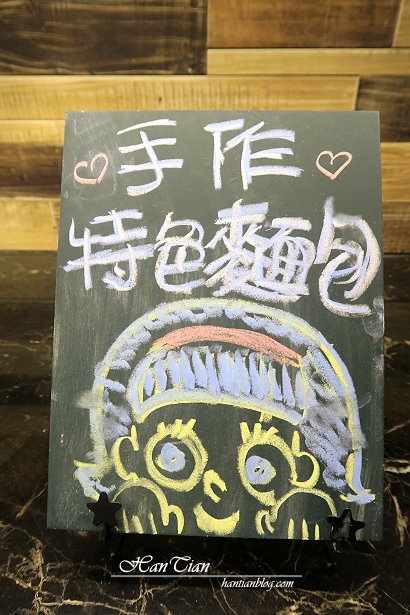 手作
特色麵包
HanTian
hantianblog.com